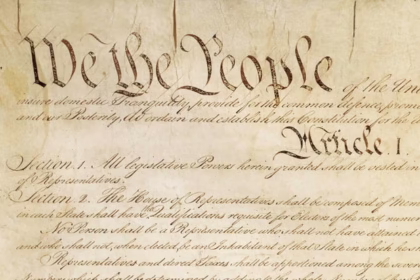 We the People of the Uni
insure domestic Tranquility, provide for the common defence, promo
and our Posterity, do ordain and establish this Constitution for the
Article. I.
Section. 1. All legislative Powers herein granted shall be vested in
of Representatives.
Section. 2. The House of Representatives shall be composed of Mem
in each State shall have Qualifications requisite for Electors of the most numer
No Person shall be a Representative who shall not have attained
and who shall not, when elected, be an Inhabitant of that State in which he
Representatives and direct Taxes shall be apportioned among the sever